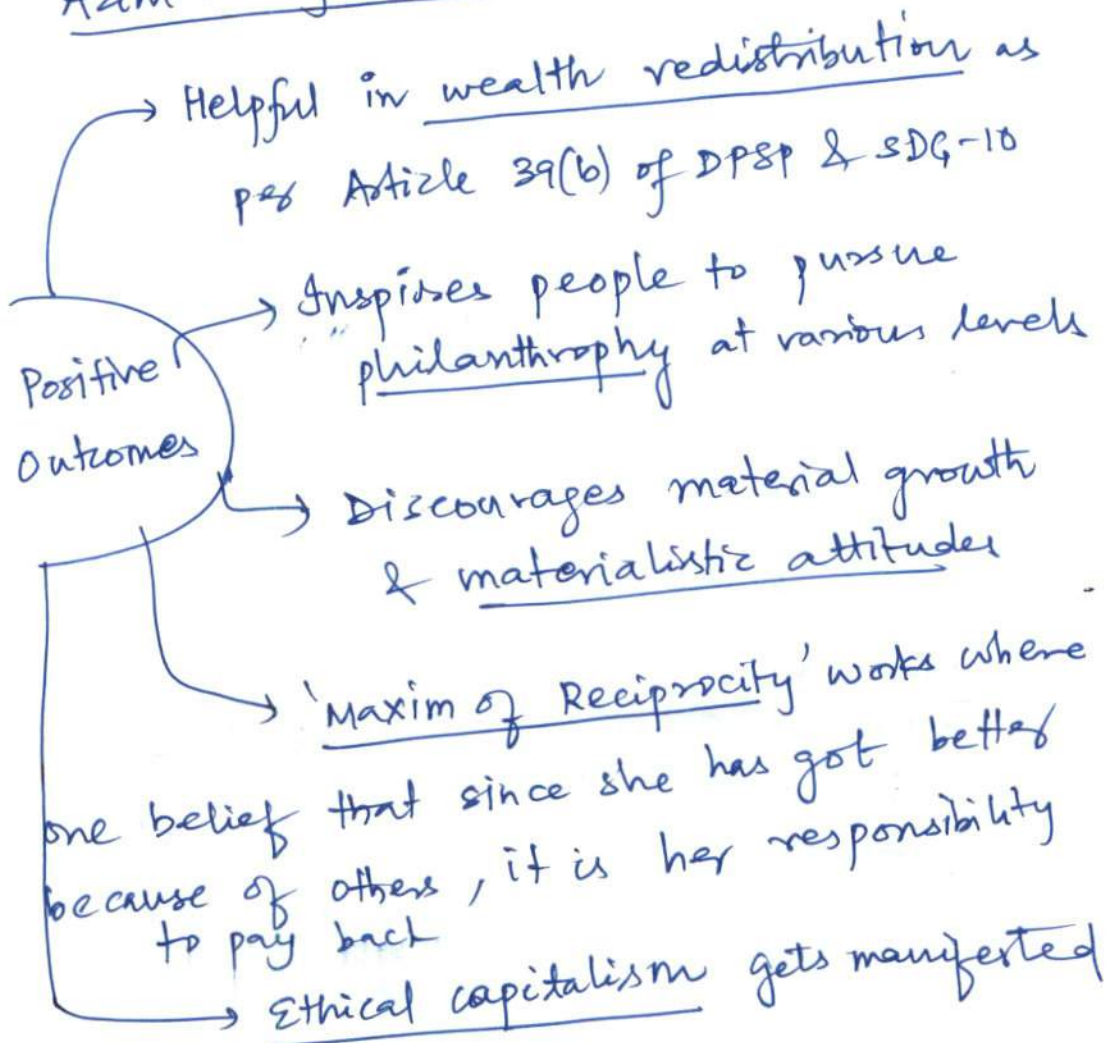 Helpful in wealth redistribution as
per Article 39(b) of DPSP & SDG-10
Inspires people to pursue
philanthrophy at various levels
Positive
Outcomes
Discourages material growth
& materialistic attitudes
'Maxim of Reciprocity' works where
one belief that since she has got better
because of others, it is her responsibility
to pay back
Ethical capitalism gets manifested